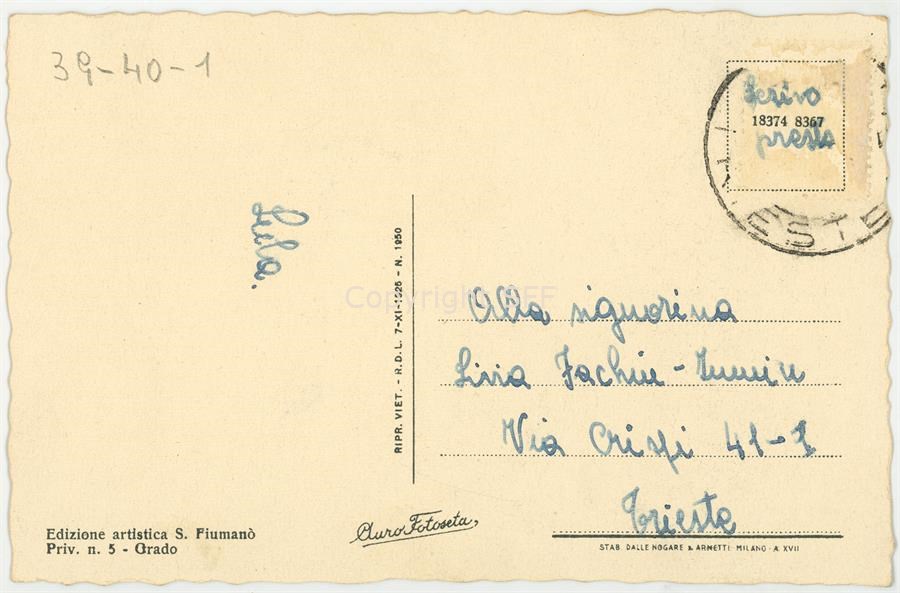 39-40-1
Scrivo
18374 8367
presto
TRIESTE
Lila.
RIPR. VIET. - R.D.L. 7-XI-1925 - N. 1950
Copyright
Alla signorina
Livia Fachin-
Via Crispi 41-I
Trieste
Edizione artistica S. Fiumanò
Priv. n. 5 - Grado
Auro Fotoseta,
STAB. DALLE NOGARE & ARMETTI MILANO - A. XVII